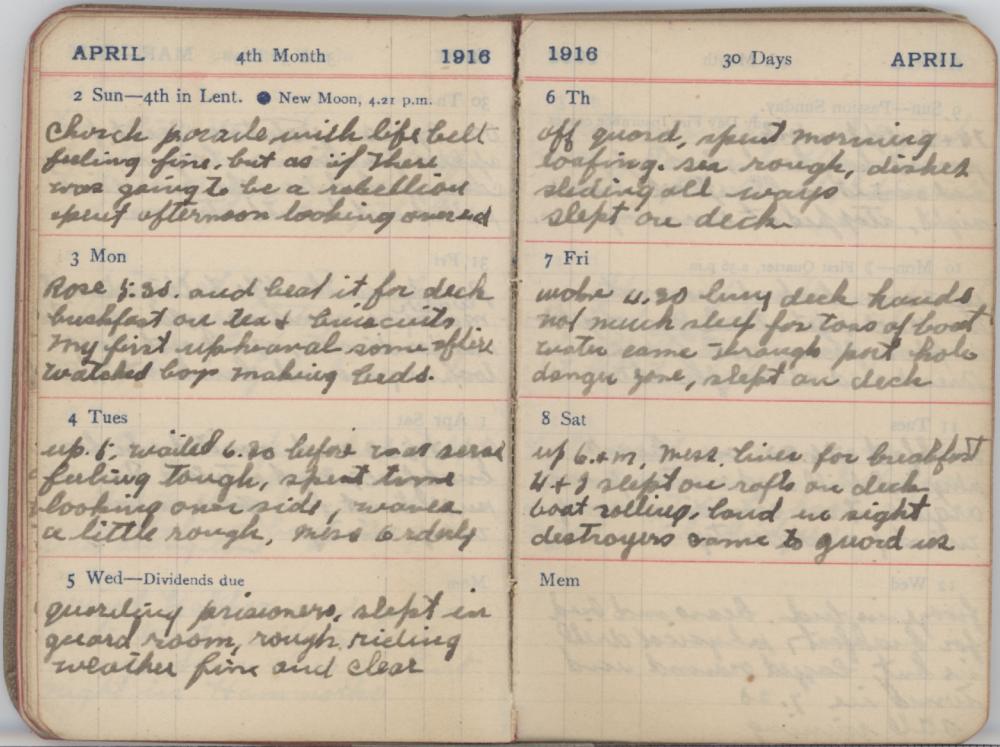 APRIL 4th Month 1916
2 Sun—4th in Lent. ● New Moon, 4.21 p.m.
Church parade with life belt
feeling fine, but as if there
was going to be a rebellion
spent afternoon looking over
3 Mon
Rose 5:30. and beat it for deck
breakfast on tea &
My first upheaval some
watched boys making beds.
4 Tues
up. 5. waited 6.30 before
feeling tough, spent time
looking over side, waves
a little rough, mess orderly
5 Wed—Dividends due
guarding prisioners, slept in
guard room, rough riding
weather fine and clear
1916 30 Days APRIL
6 Th
off guard, spent morning
loafing. sea rough, dishes
sliding all ways
slept on deck
7 Fri
woke 4.30 by deck hands
not much sleep for toss of boat
water came through port hole
danger zone, slept on deck
8 Sat
up 6. a m, mess. liver for breakfast
4 + I slept on rafts on deck
boat rolling. land in sight
destroyers came to guard us
Mem